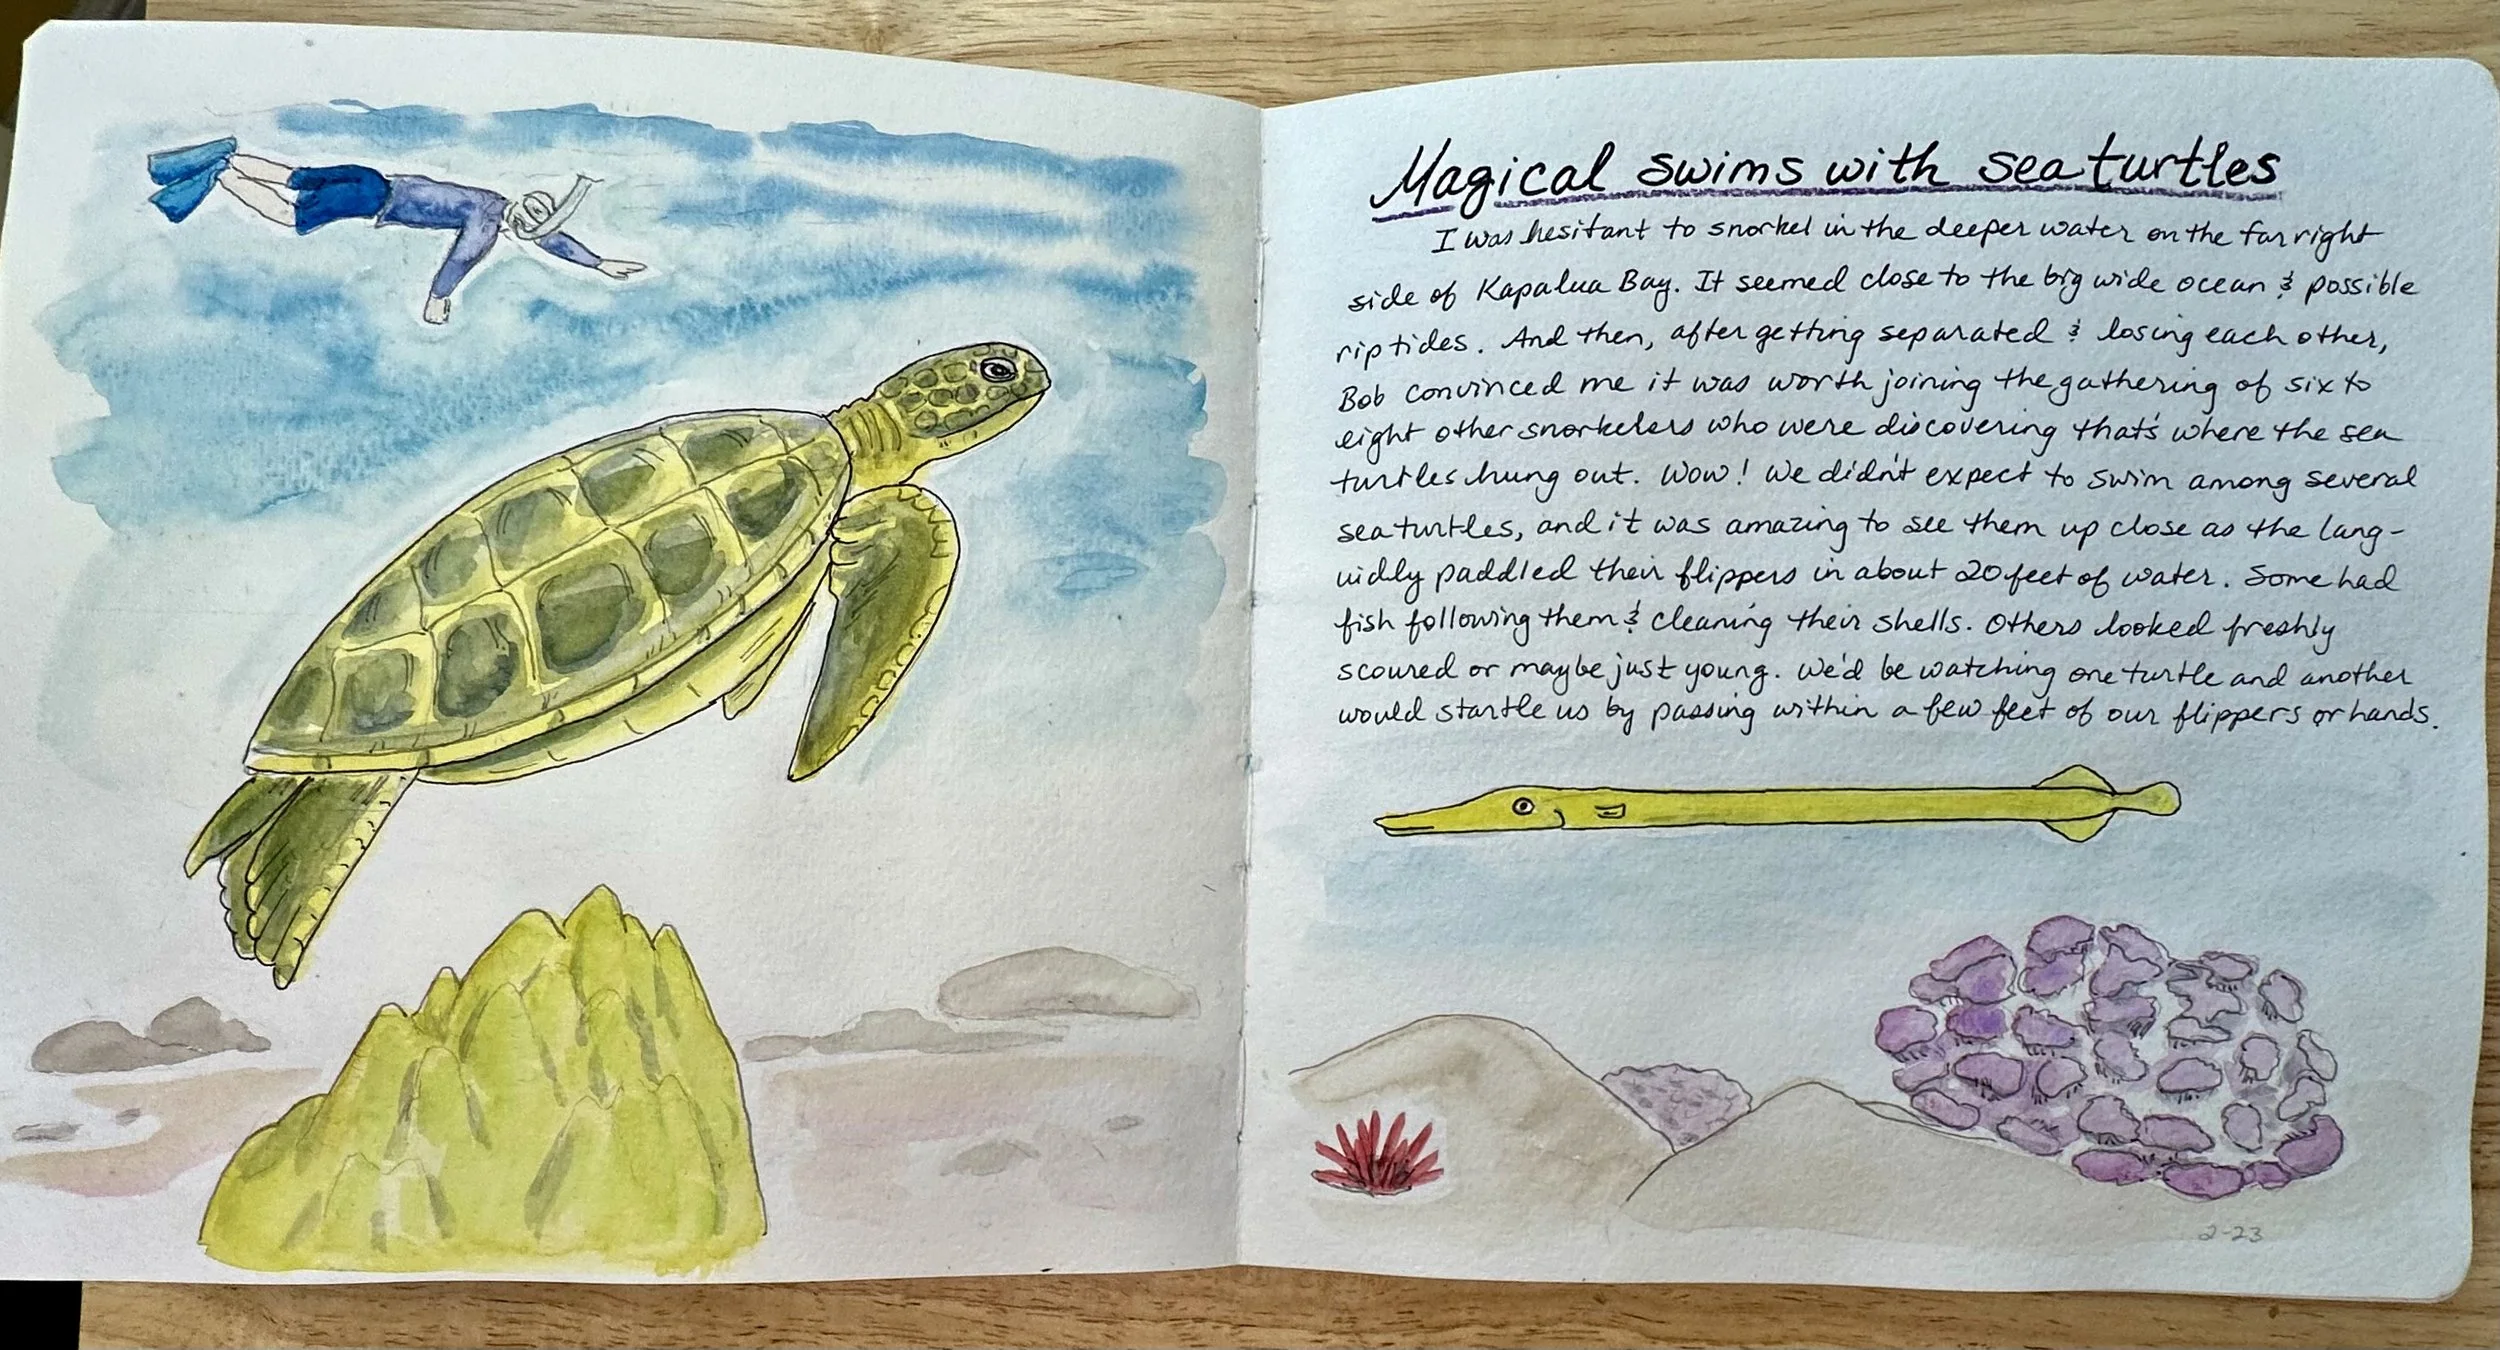 Magical swims with sea turtles
I was hesitant to snorkel in the deeper water on the far right
side of Kapalua Bay. It seemed close to the big wide ocean & possible
riptides. And then, after getting separated & losing each other,
Bob convinced me it was worth joining the gathering of six to
eight other snorkelers who were discovering that's where the sea
turtles hung out. Wow! We didn't expect to swim among several
sea turtles, and it was amazing to see them up close as the lang-
uidly paddled their flippers in about 20 feet of water. Some had
fish following them & cleaning their shells. Others looked freshly
scoured or maybe just young. We'd be watching one turtle and another
would startle us by passing within a few feet of our flippers or hands.
2-23